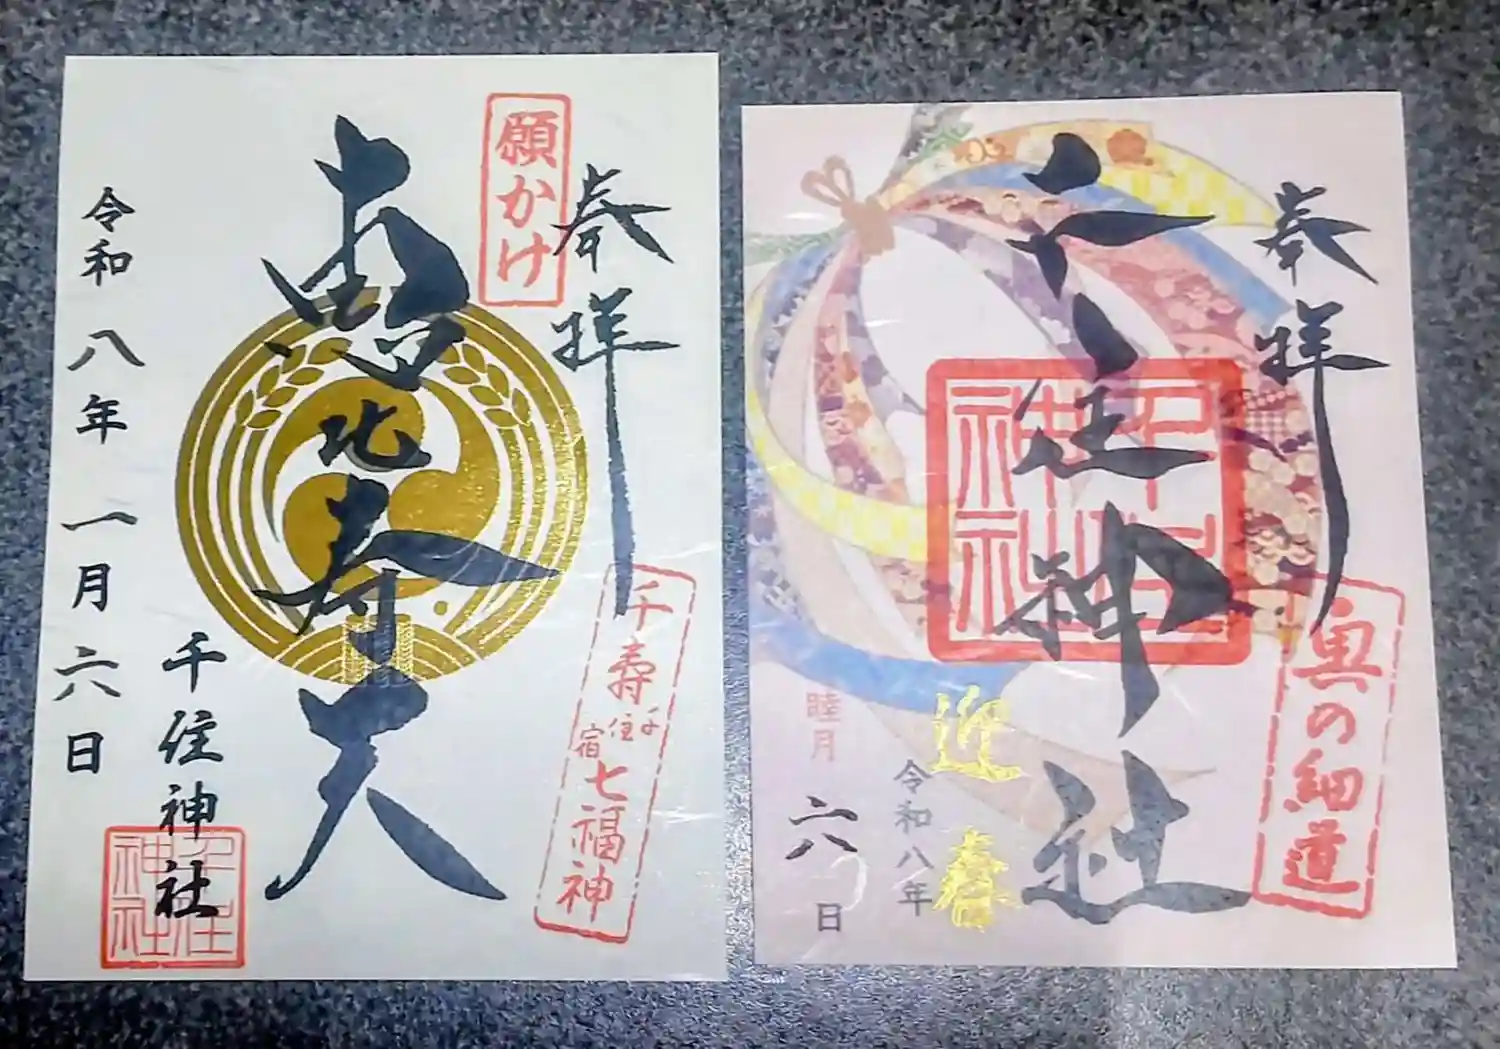 奉拝
願かけ
恵比寿天
千寿
千住宿
七福神
千住神社
千住神社
令和八年一月六日
奉拝
奥の細道
千住神社
千住神社
迎春
令和八年
睦月
六日